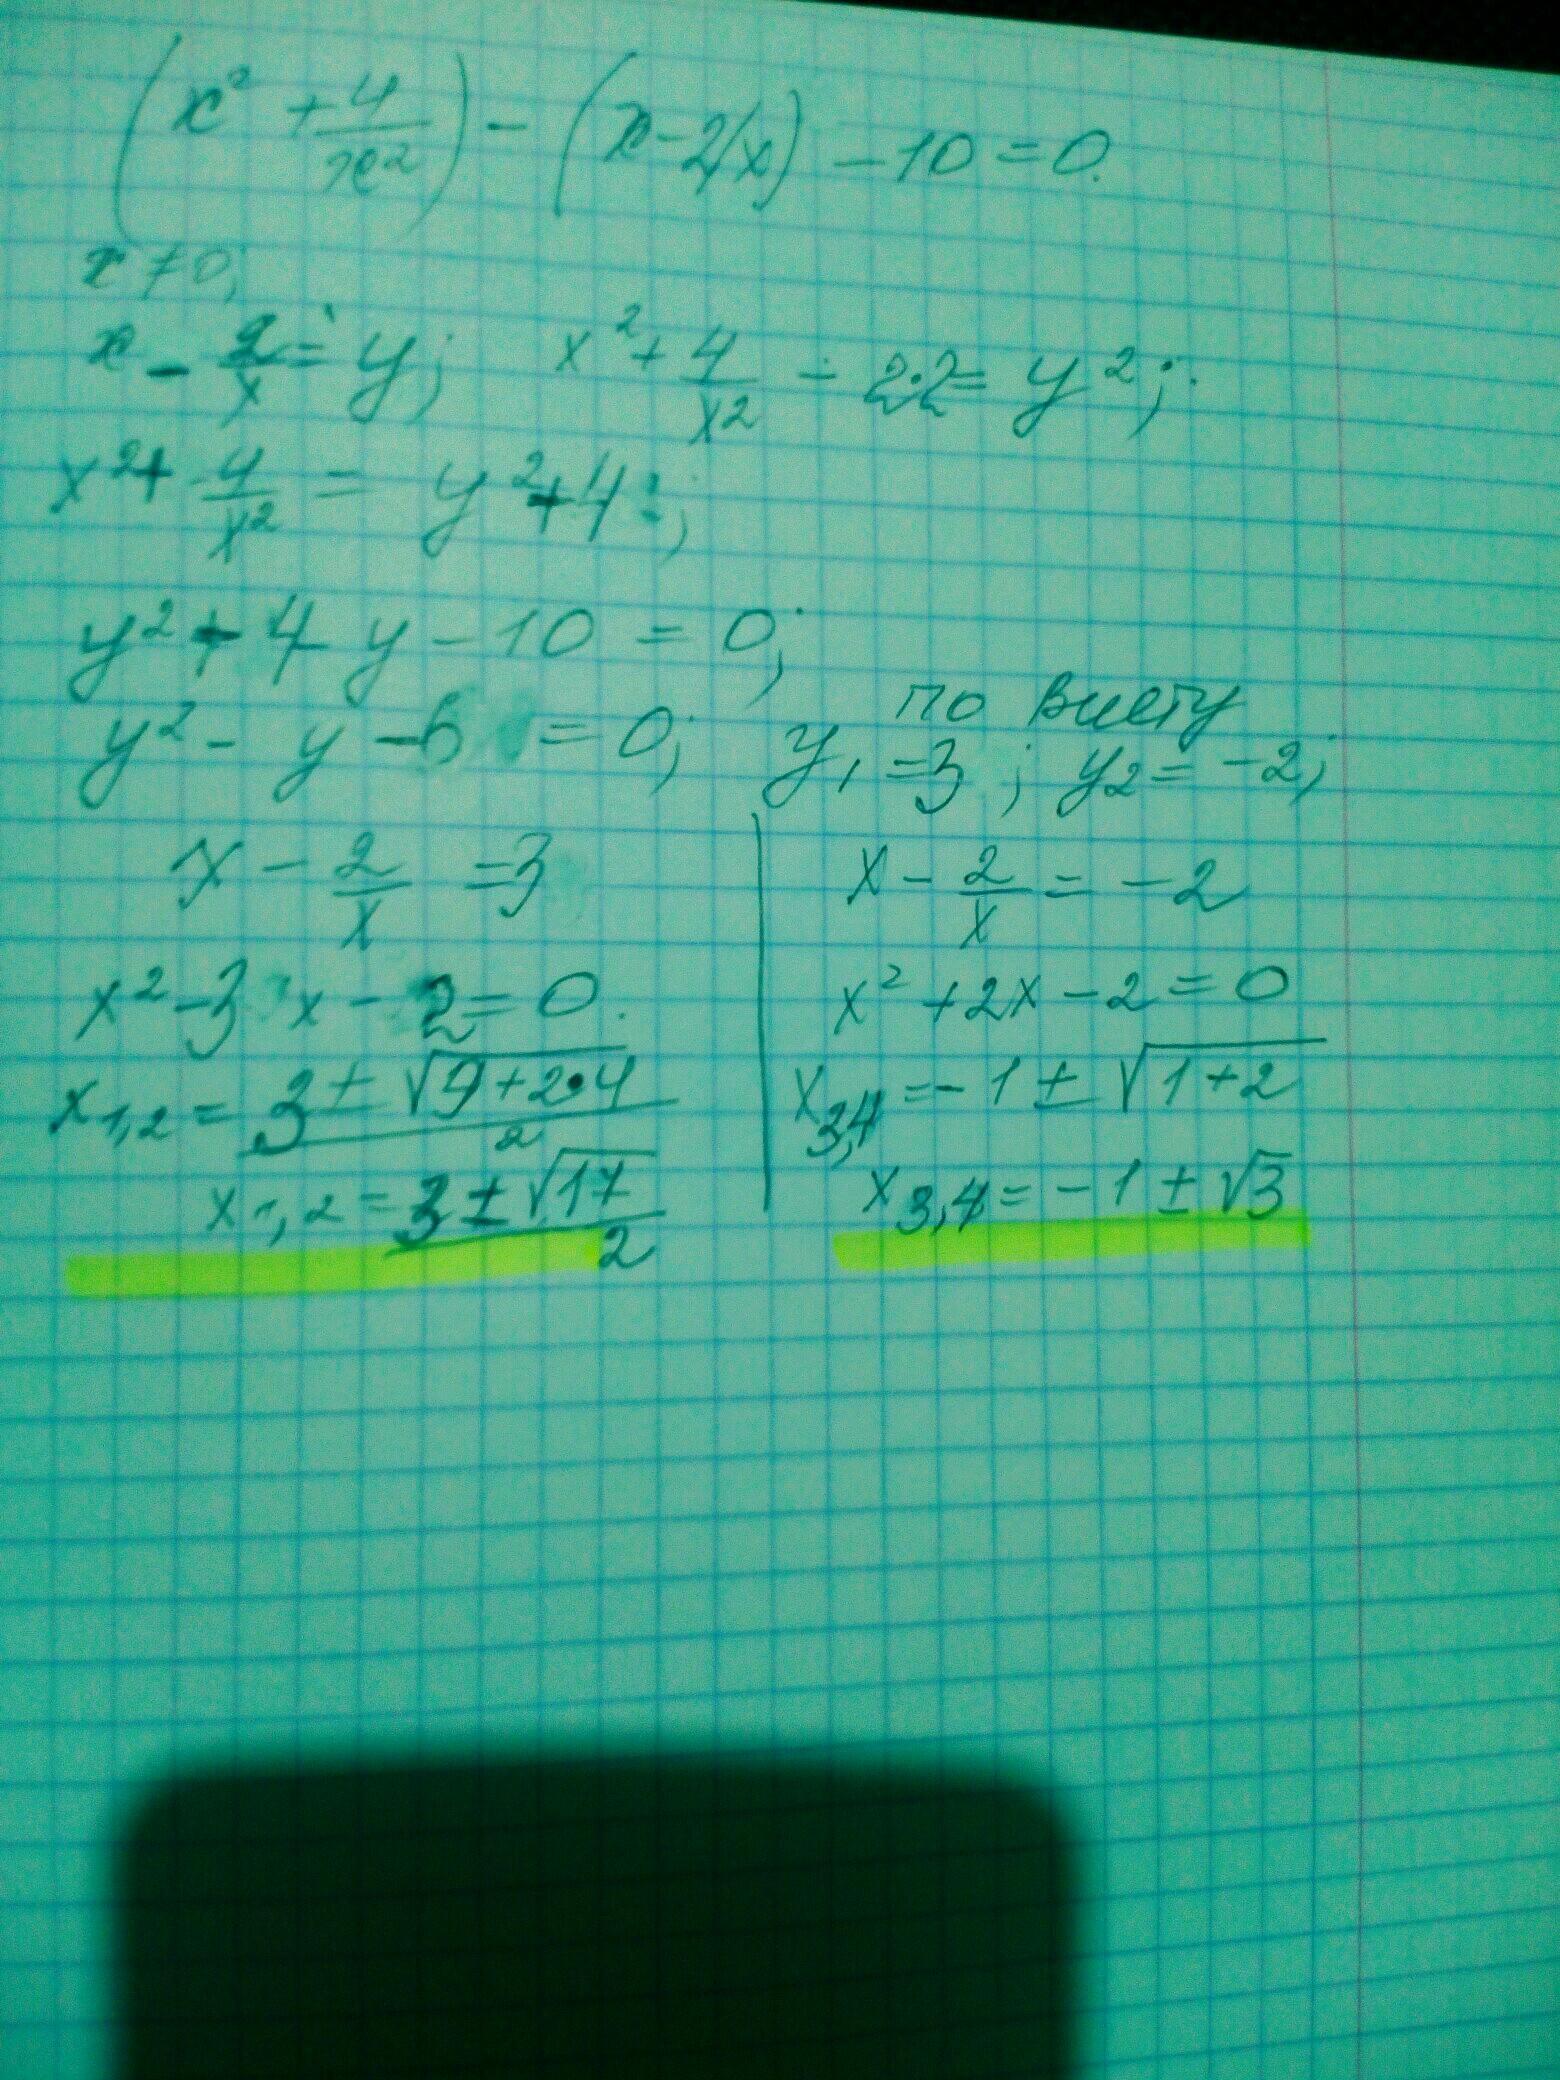 (x² + 4/x²) - (x - 2/x) - 10 = 0.
x ≠ 0;
x - 2/x = y; x² + 4/x² - 2·2 = y²;
x² + 4/x² = y² + 4;
y² + 4 y - 10 = 0;
по Виету
y² - y - 6 = 0; y₁ = 3; y₂ = -2;
x - 2/x = 3
x - 2/x = -2
x² - 3x - 2 = 0.
x² + 2x - 2 = 0
x₁,₂ = (3 ± √(9 + 2·4))/2
x₃,₄ = -1 ± √(1+2)
x₁,₂ = (3 ± √17)/2
x₃,₄ = -1 ± √3